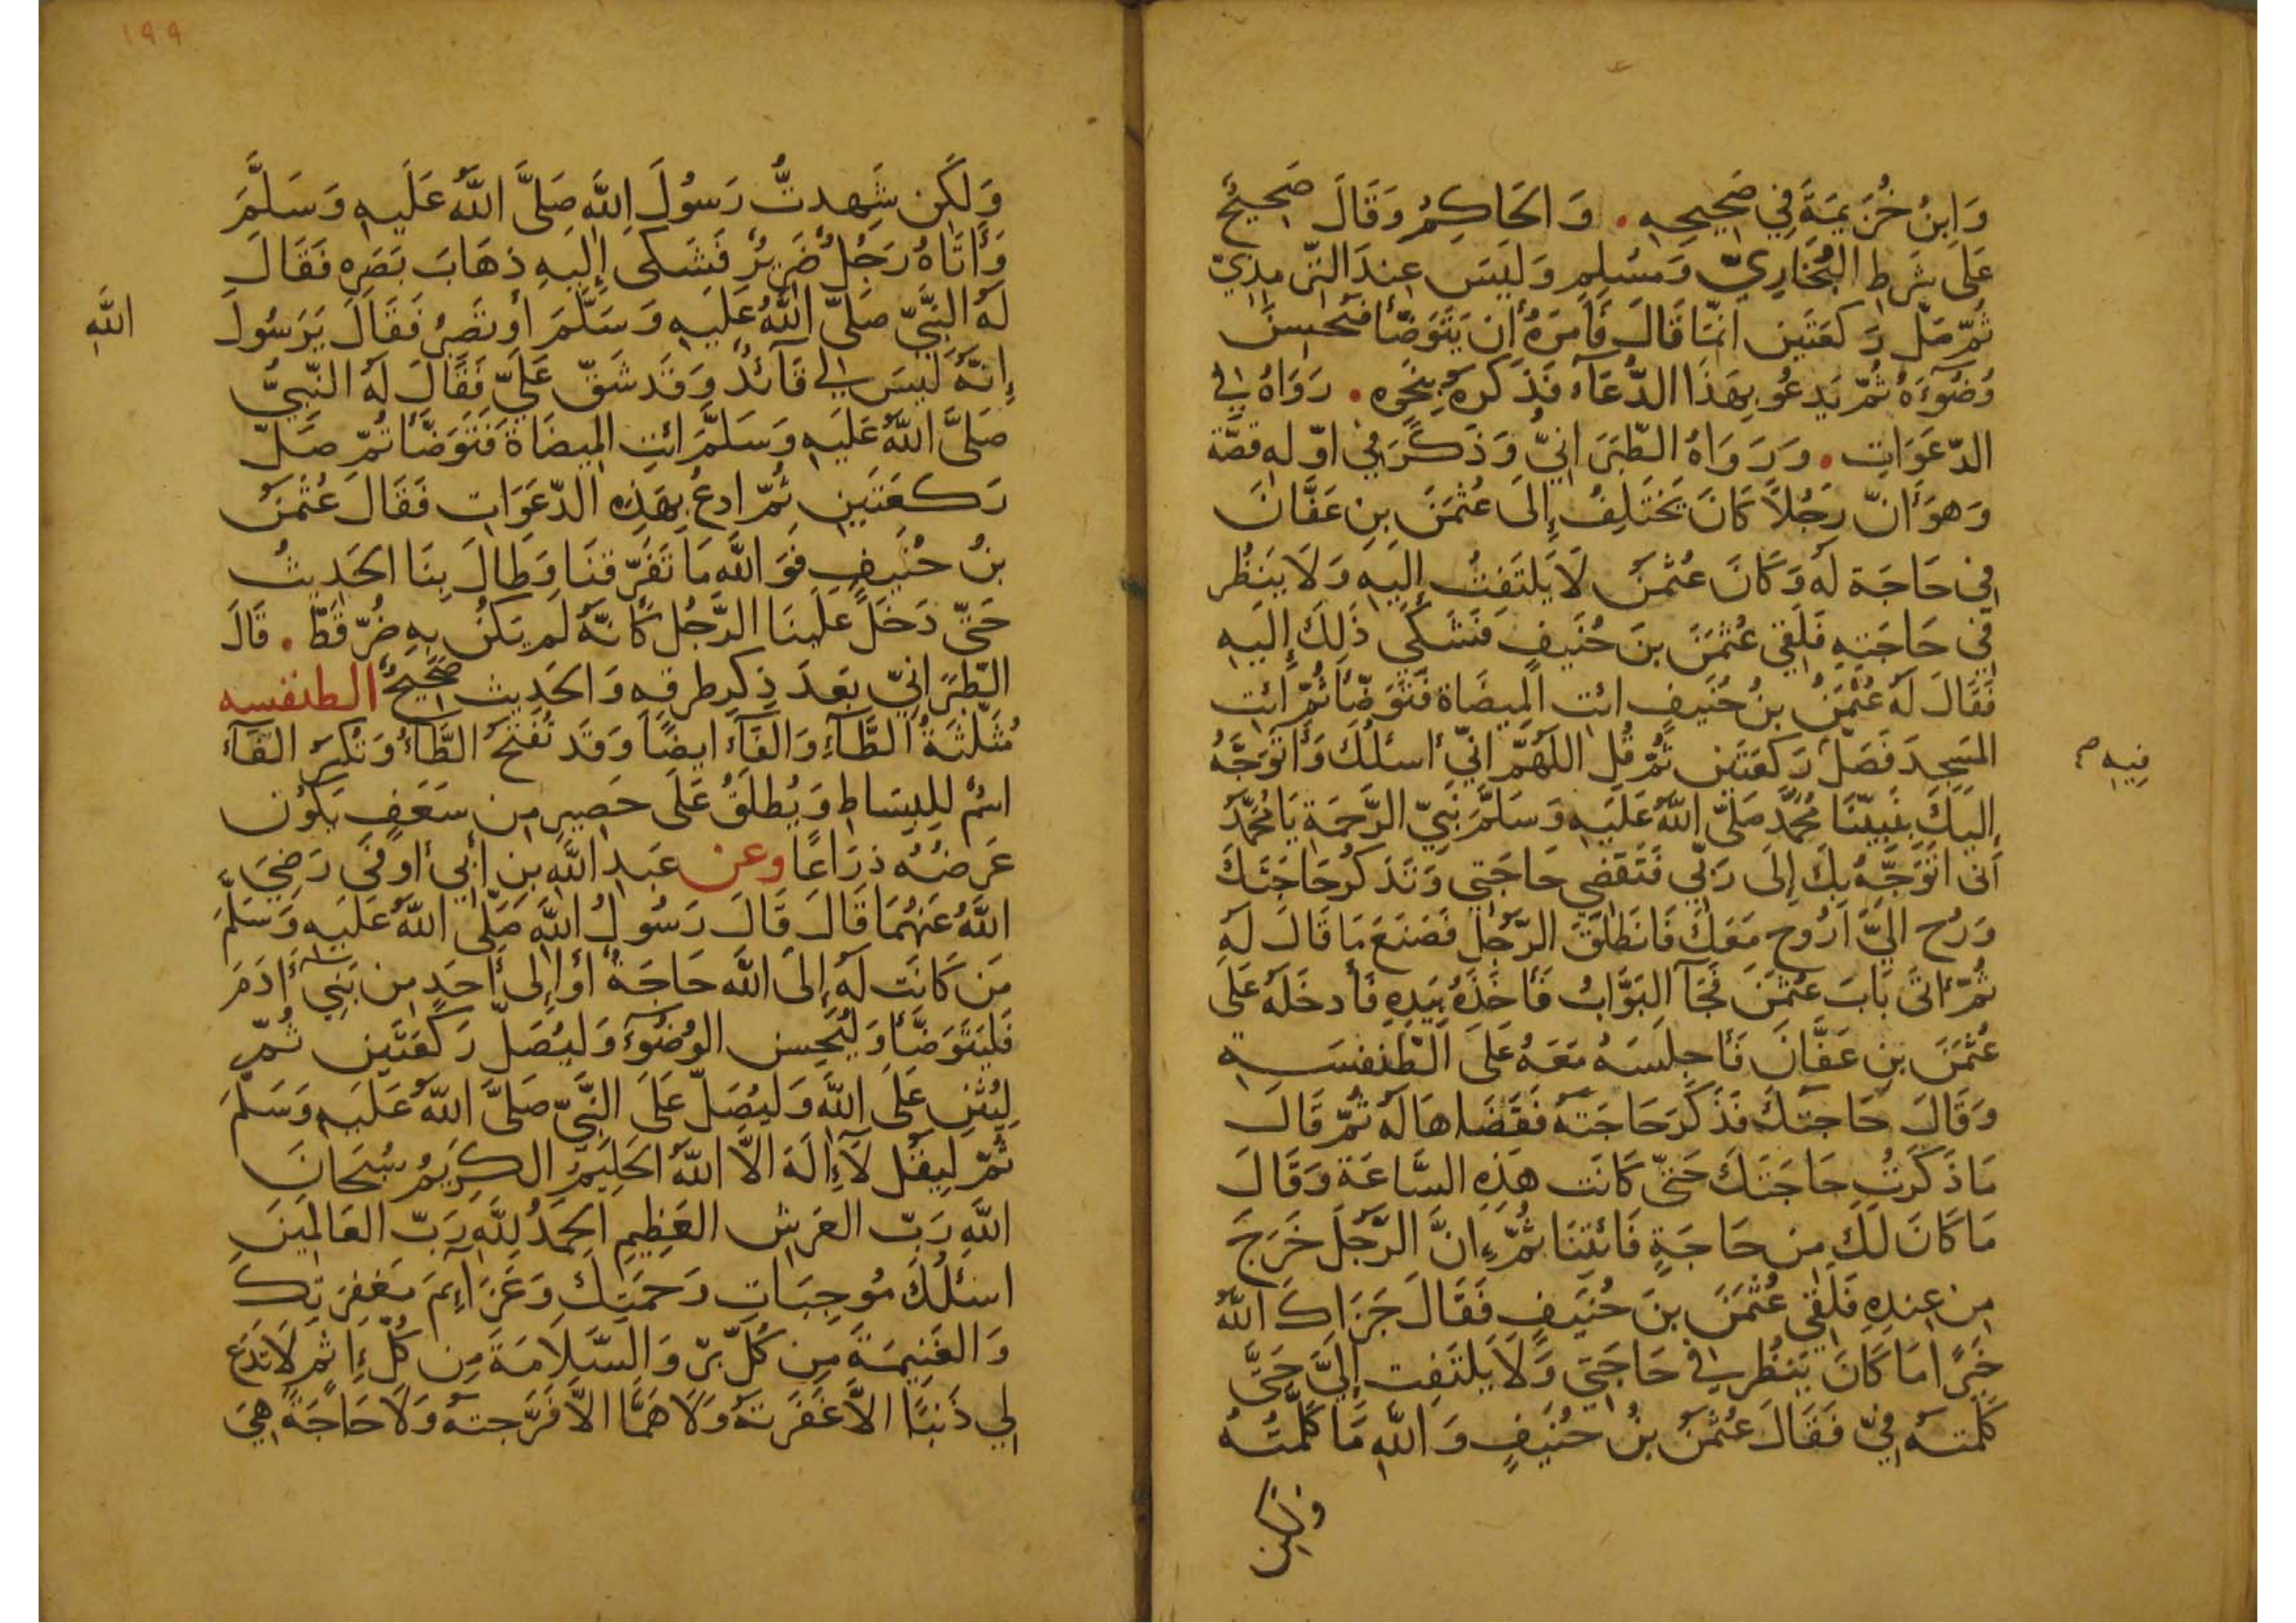 وَابنُ خُزَيمَةَ فِي صَحِيحِهِ . وَالحَاكِمُ وَقَالَ صَحِيحٌ
عَلَى شَرطِ البُخَارِيّ وَمُسلِمٍ وَلَيسَ عِندَ التّرمِذِيّ
ثُمّ صَلّ رَكعَتَين انمّا قَالَ فَأَمَرَهُ أن يَتَوَضّأ فَيُحسِنُ
وُضُوءَهُ ثُمّ يَدعُو بِهَذَا الدُّعَآءِ فَذَكَرهُ بِنَحوِهِ . رَوَاهُ في
الدّعَوَاتِ . وَرَوَاهُ الطّبَرَانيُّ وَذَكَرَ فِي اوّلِهِ قصّة
وَهوَ أنّ رَجُلاً كَانَ يَختَلِفُ إِلَى عُثمَنَ بنِ عَفَّانَ
فِي حَاجَة لَهُ وَكَانَ عُثمَنُ لَا يَلتَفِتُ إِلَيهِ وَلَا يَنظُر
فِي حَاجَتِهِ فَلَقِي عُثمَنَ بنَ حُنَيفٍ فَشَكَى ذَلِكَ إِلَيهِ
فَقَالَ لَهُ عُثمَنُ بنُ حُنَيفٍ ائت المَيضَاة فَتَوَضّأ ثُمّ ائت
المَسجِدَ فَصَلّ رَكعَتَين ثُمّ قُل اللَهُمّ انّي أسئلُكَ وَأَتَوَجَّهُ
إِلَيكَ بِنَبِيّنَا مُحَمَّد صَلّى اللّهُ عَلَيهِ وَسَلّمَ نَبِيّ الرَّحمَة يَا مُحَمَّدُ
اَنى اتَوَجَّهُ بِكَ إِلَى رَبّي فَتَقضِي حَاجَتِي وَتَذكُر حَاجَتَكَ
وَرُح الَيَّ اَرُوح مَعَكَ فَانطَلَقَ الرّجُل فَصَنَعَ مَا قَالَ لَهُ
ثُمّ أتَى بَابَ عُثمَنَ فَجَآ البَوَّابُ فَأَخَذَهُ بِيَدِهِ فَأَدخَلَهُ عَلَى
عُثمَنَ بنِ عَفَّانَ فَأَجلَسَهُ مَعَهُ عَلَى الطّنفِسَة
وَقَالَ حَاجَتَكَ فَذَكَرَ حَاجَتَهُ فَقَضَاهَا لَهُ ثُمّ قَالَ
مَا ذَكَرتُ حَاجَتَكَ حَتّى كَانَت هَذِهِ السَّاعَة وَقَالَ
مَا كَانَ لَكَ مِن حَاجَةٍ فَائتِنَا ثُمّ إنَّ الرَّجُلَ خَرَجَ
مِن عِندِهِ فَلَقِي عُثمَنَ بنَ حُنَيفٍ فَقَالَ جَزَاكَ اللّهُ
خَيرًا مَا كَانَ يَنظُر فِي حَاجَتِي وَلَا يَلتَفِت إِلَيَّ حَتَّى
كَلّمتَهُ فِيّ فَقَالَ عُثمَنُ بنُ حُنَيفٍ وَاللّهِ مَا كَلّمتُهُ
فِيهِ م
ولكن
١٩٩
وَلَكِن شَهِدتُّ رَسُولَ اللّهِ صَلَّى اللّهُ عَلَيهِ وَسَلَّمَ
وَأَتَاهُ رَجُلٌ ضَرِيرٌ فَشَكَى إِلَيهِ ذِهَابَ بَصَرِهِ فَقَالَ
لَهُ النَّبِيّ صَلَّى اللّهُ عَلَيهِ وَسَلَّمَ أو تَصبِرُ فَقَالَ يَرَسُولَ
اللّهِ
إِنّهُ لَيسَ لِي قَآئدٌ وَقَد شَقّ عَلَيّ فَقَالَ لَهُ النَّبِيُّ
صَلَّى اللّهُ عَلَيهِ وَسَلَّمَ ائتِ المِيضَاةَ فَتَوَضَّأ ثُمّ صَلّ
رَكعَتَينِ ثُمّ ادعُ بِهَذِهِ الدّعَوَاتِ فَقَالَ عُثمَنُ
بنُ حُنَيفٍ فَوَ اللّهِ مَا تَفَرّقنَا وَطَالَ بِنَا الحَدِيثُ
حَتّى دَخَلَ عَلَينَا الرَّجُل كَانّهُ لَم يَكُن بِهِ ضُرّ قَطّ . قَالَ
الطّبَرَانِيّ بَعدَ ذِكرِ طرقِهِ وَالحَدِيث صَحِيحٌ الطنفسه
مُثَلّثَةُ الطَّآءِ وَالفَآءِ ايضًا وَقَد تُفتَحُ الطَّآءُ وَتُكسَرُ الفَآءُ
اسمٌ لِلبِسَاطِ وَيُطلَقُ عَلَى حَصِيرٍ مِن سَعَفٍ يَكُون
عَرضُهُ ذِرَاعًا وعن عَبدِ اللّهِ بن أبِي أوفَى رَضِيَ
اللّهُ عَنهُمَا قَالَ قَالَ رَسُولُ اللّهِ صَلّى اللّهُ عَلَيهِ وَسَلّمَ
مَن كَانَت لَهُ إِلَى اللّهِ حَاجَةٌ أو إِلَى أَحَدٍ مِن بَنِي آدَمَ
فَليَتَوَضَّأ وَليُحسِن الوُضُوءَ وَليُصَلّ رَكعَتَين ثُمّ
لِيُثنِ عَلَى اللّهِ وَليُصَلّ عَلَى النَّبِيّ صَلَّى اللّهُ عَلَيهِ وَسَلّمَ
ثُمّ لِيقُل لَآ إِلَهَ الاّ اللّهُ الحَلِيمُ الكَرِيمُ سُبحَانَ
اللّهِ رَبّ العَرشِ العَظِيمِ الحَمدُ لِلّهِ رَبّ العَالَمِينَ
اسئَلُكَ مُوجِبَاتِ رَحمَتِكَ وَعَزَائِمَ مَغفِرَتِكَ
وَالغَنِيمَةَ مِن كُلّ بِرّ وَالسَّلاَمَةَ مِن كُلّ إثمٍ لَا تَدَع
لِي ذَنبًا الاّ غَفَرتَهُ وَلَا هَمًّا الاّ فَرَّجتَهُ وَلَا حَاجَةً هِيَ